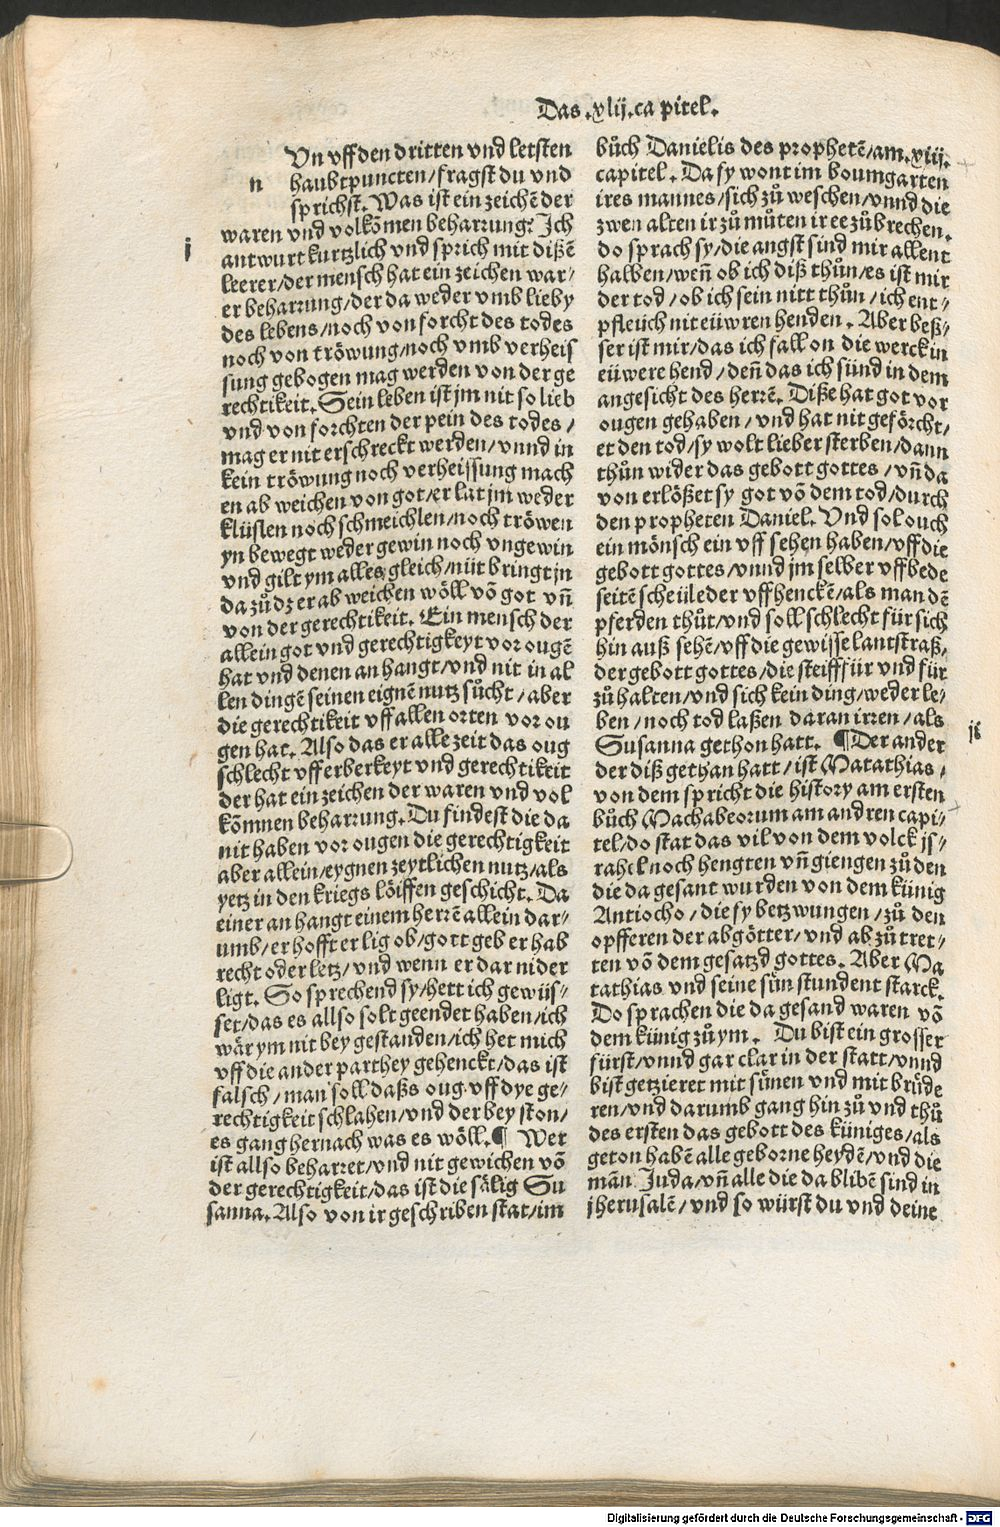 Das .xlij. ca pitel.
n
Un vff den dritten vnd letsten
haubtpuncten/fragst du vnd
sprichst. Was ist ein zeichẽ der
waren vnd volkõmen beharrung? Ich
i
antwurt kurtzlich vnd sprich mit dißẽ
leerer/der mensch hat ein zeichen war-
er beharrung/der da weder vmb lieby
des lebens/noch von forcht des todes
noch von tröwung/noch vmb verheis
sung gebogen mag werden von der ge
rechtikeit. Sein leben ist jm nit so lieb
vnd von forchten der pein des todes/
mag er nit erschreckt werden/vnnd in
kein tröwung noch verheissung mach
en ab weichen von got/er lat jm weder
klüslen noch schmeichlen/noch tröwen
yn bewegt weder gewin noch vngewin
vnd gilt ym alles gleich/nüt bringt jn
da zů dz er ab weichen wöll võ got vñ
von der gerechtikeit. Ein mensch der
allein got vnd gerechtigkeyt vor ougẽ
hat vnd denen an hangt/vnd nit in al
len dingẽ seinen eignẽ nutz sůcht/aber
die gerechtikeit vff allen orten vor ou
gen hat. Also das er alle zeit das oug
schlecht vff erberkeyt vnd gerechtikeit
der hat ein zeichen der waren vnd vol
kõmnen beharrung. Du findest die da
nit haben vor ougen die gerechtigkeit
aber allein/eygnen zeytlichen nutz/als
yetz in den kriegs löiffen geschicht. Da
einer an hangt einem herrẽ allein dar-
umb/er hofft er lig ob/gott geb er hab
recht oder letz/vnd wenn er dar nider
ligt. So sprechend sy/hett ich gewüs-
set/das es allso solt geendet haben/ich
wär ym nit bey gestanden/ich het mich
vff die ander parthey gehenckt/das ist
falsch/man soll daßs oug vff dye ge-
rechtigkeit schlahen/vnd der bey ston/
es gang hernach was es wöll. ¶ Wer
ist allso beharret/vnd nit gewichen võ
der gerechtigkeit/das ist die sälig Su
sanna. Also von ir geschriben stat/im
bůch Danielis des prophetẽ/am .xiij.
capitel. Da sy wont im boumgarten
ires mannes/sich zů weschen/vnnd die
zwen alten ir zů můten ir ee zů brechen.
do sprach sy/die angst sind mir allent
halben/weñ ob ich diß thůn/es ist mir
der tod/ob ich sein nitt thůn/ich ent-
pfleüch nit eüwren henden. Aber beß-
ser ist mir/das ich fall on die werck in
eüwere hend/deñ das ich sünd in dem
angesicht des herrẽ. Diße hat got vor
ougen gehaben/vnd hat nit geförcht/
et den tod/sy wolt lieber sterben/dann
thůn wider das gebott gottes/vñ da
von erlößet sy got võ dem tod/durch
den propheten Daniel. Vnd sol ouch
ein mönsch ein vff sehen haben/vff die
gebott gottes/vnnd jm selber vff bede
seitẽ scheüleder vffhenckẽ/als man dẽ
pferden thůt/vnd soll schlecht für sich
hin auß sehẽ/vff die gewisse lantstraß,
der gebott gottes/die steiff für vnd für
zů halten/vnd sich kein ding/weder le-
ben/noch tod laßen daran irren/als
Susanna gethon hatt. ¶ Der ander
ij
der diß gethan hatt/ist Matathias/
von dem spricht die history am ersten
bůch Machabeorum am andren capi-
tel/do stat das vil von dem volck js-
rahel noch hengten vñ giengen zů den
die da gesant wurden von dem künig
Antiocho/die sy betzwungen/zů den
opfferen der abgötter/vnd ab zů tret-
ten võ dem gesatzd gottes. Aber Ma
tathias vnd seine sün stundent starck.
Do sprachen die da gesand waren võ
dem künig zů ym. Du bist ein grosser
fürst/vnnd gar clar in der statt/vnnd
bist getzieret mit sünen vnd mit brüde
ren/vnd darumb gang hin zů vnd thů
des ersten das gebott des küniges/als
geton habẽ alle geborne heydẽ/vnd die
mãn Juda/vñ alle die da blibẽ sind in
jherusalẽ/vnd so würst du vnd deine
Digitalisierung gefördert durch die Deutsche Forschungsgemeinschaft - DFG